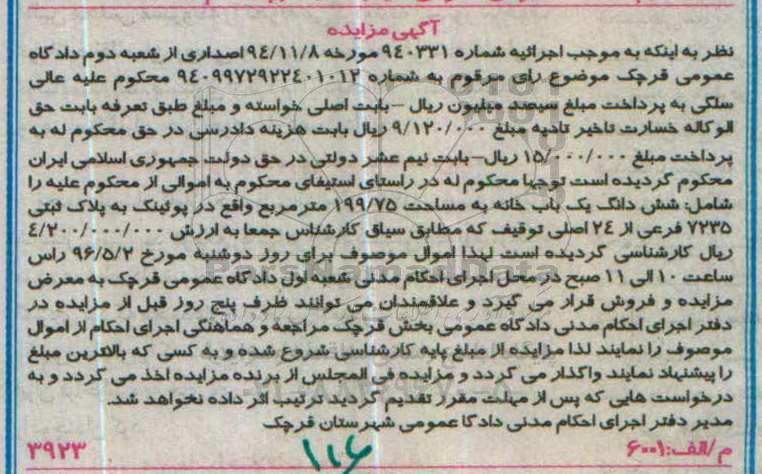 آگهی مزایده
نظر به اینکه به موجب اجرائیه شماره ۹۴۰۳۳۱ مورخه ۹۴/۱۱/۸ اصداری از شعبه دوم دادگاه
عمومی قرچک موضوع رای مرقوم به شماره ۹۴۰۹۹۷۲۹۲۲۴۰۱۰۱۲ محکوم علیه عالی
سلکی به پرداخت مبلغ سیصد میلیون ریال – بابت اصلی خواسته و مبلغ طبق تعرفه بابت حق
الوکاله خسارت تاخیر تادیه مبلغ ۹/۱۲۰/۰۰۰ ریال بابت هزینه دادرسی در حق محکوم له به
پرداخت مبلغ ۱۵/۰۰۰/۰۰۰ ریال– بابت نیم عشر دولتی در حق دولت جمهوری اسلامی ایران
محکوم گردیده است توجها محکوم له در راستای استیفای محکوم به اموالی از محکوم علیه را
شامل: شش دانگ یک باب خانه به مساحت ۱۹۹/۷۵ مترمربع واقع در پوئینک به پلاک ثبتی
۷۲۳۵ فرعی از ۲۴ اصلی توقیف که مطابق سیاق کارشناس جمعا به ارزش ۴/۲۰۰/۰۰۰/۰۰۰
ریال کارشناسی گردیده است لهذا اموال موصوف برای روز دوشنبه مورخ ۹۶/۵/۲ راس
ساعت ۱۰ الی ۱۱ صبح در محل اجرای احکام مدنی شعبه اول دادگاه عمومی قرچک به معرض
مزایده و فروش قرار می گیرد و علاقمندان می توانند ظرف پنج روز قبل از مزایده در
دفتر اجرای احکام مدنی دادگاه عمومی بخش قرچک مراجعه و هماهنگی اجرای احکام از اموال
موصوف را نمایند لذا مزایده از مبلغ پایه کارشناسی شروع شده و به کسی که بالاترین مبلغ
را پیشنهاد نمایند واگذار می گردد و مزایده فی المجلس از برنده مزایده اخذ می گردد و به
درخواست هایی که پس از مهلت مقرر تقدیم گردید ترتیب اثر داده نخواهد شد.
مدیر دفتر اجرای احکام مدنی دادگا عمومی شهرستان قرچک
م/الف:۶۰۰۱ ۱۱۶ ۳۹۲۳
ParsNamadData